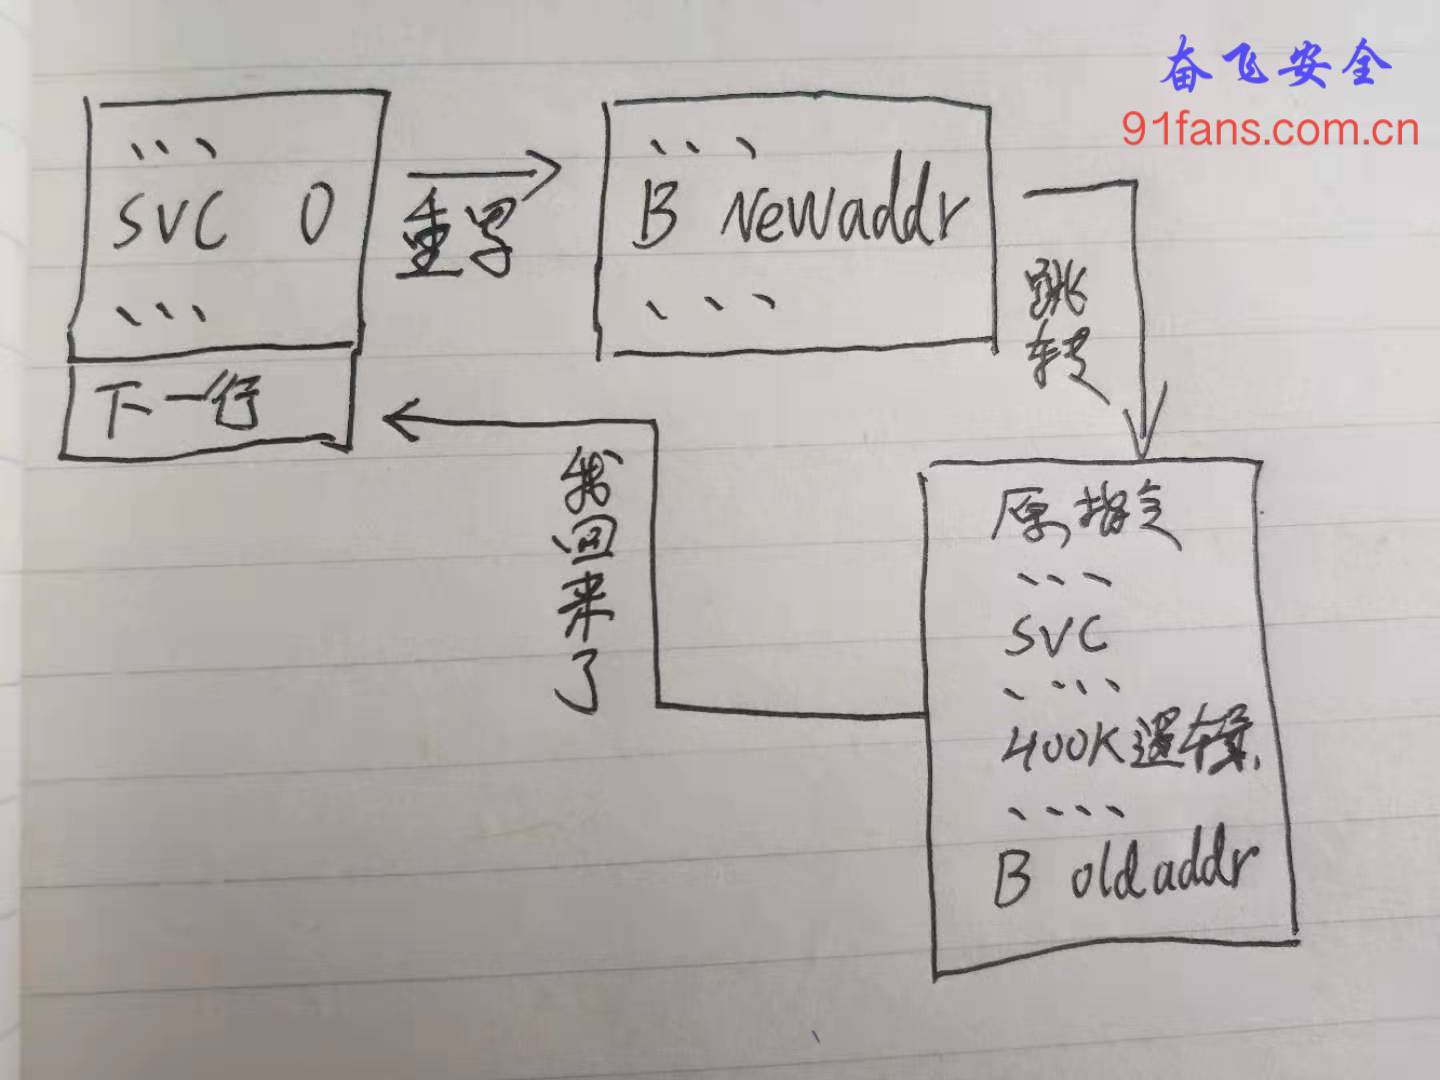 奋飞安全
91fans.com.cn
、、、
SVC 0
、、、
下一行
重写
、、、
B Newaddr
、、、
跳转
原指令
、、、
SVC
、、、、
400K逻辑
、、、、
B oldaddr
我回来了